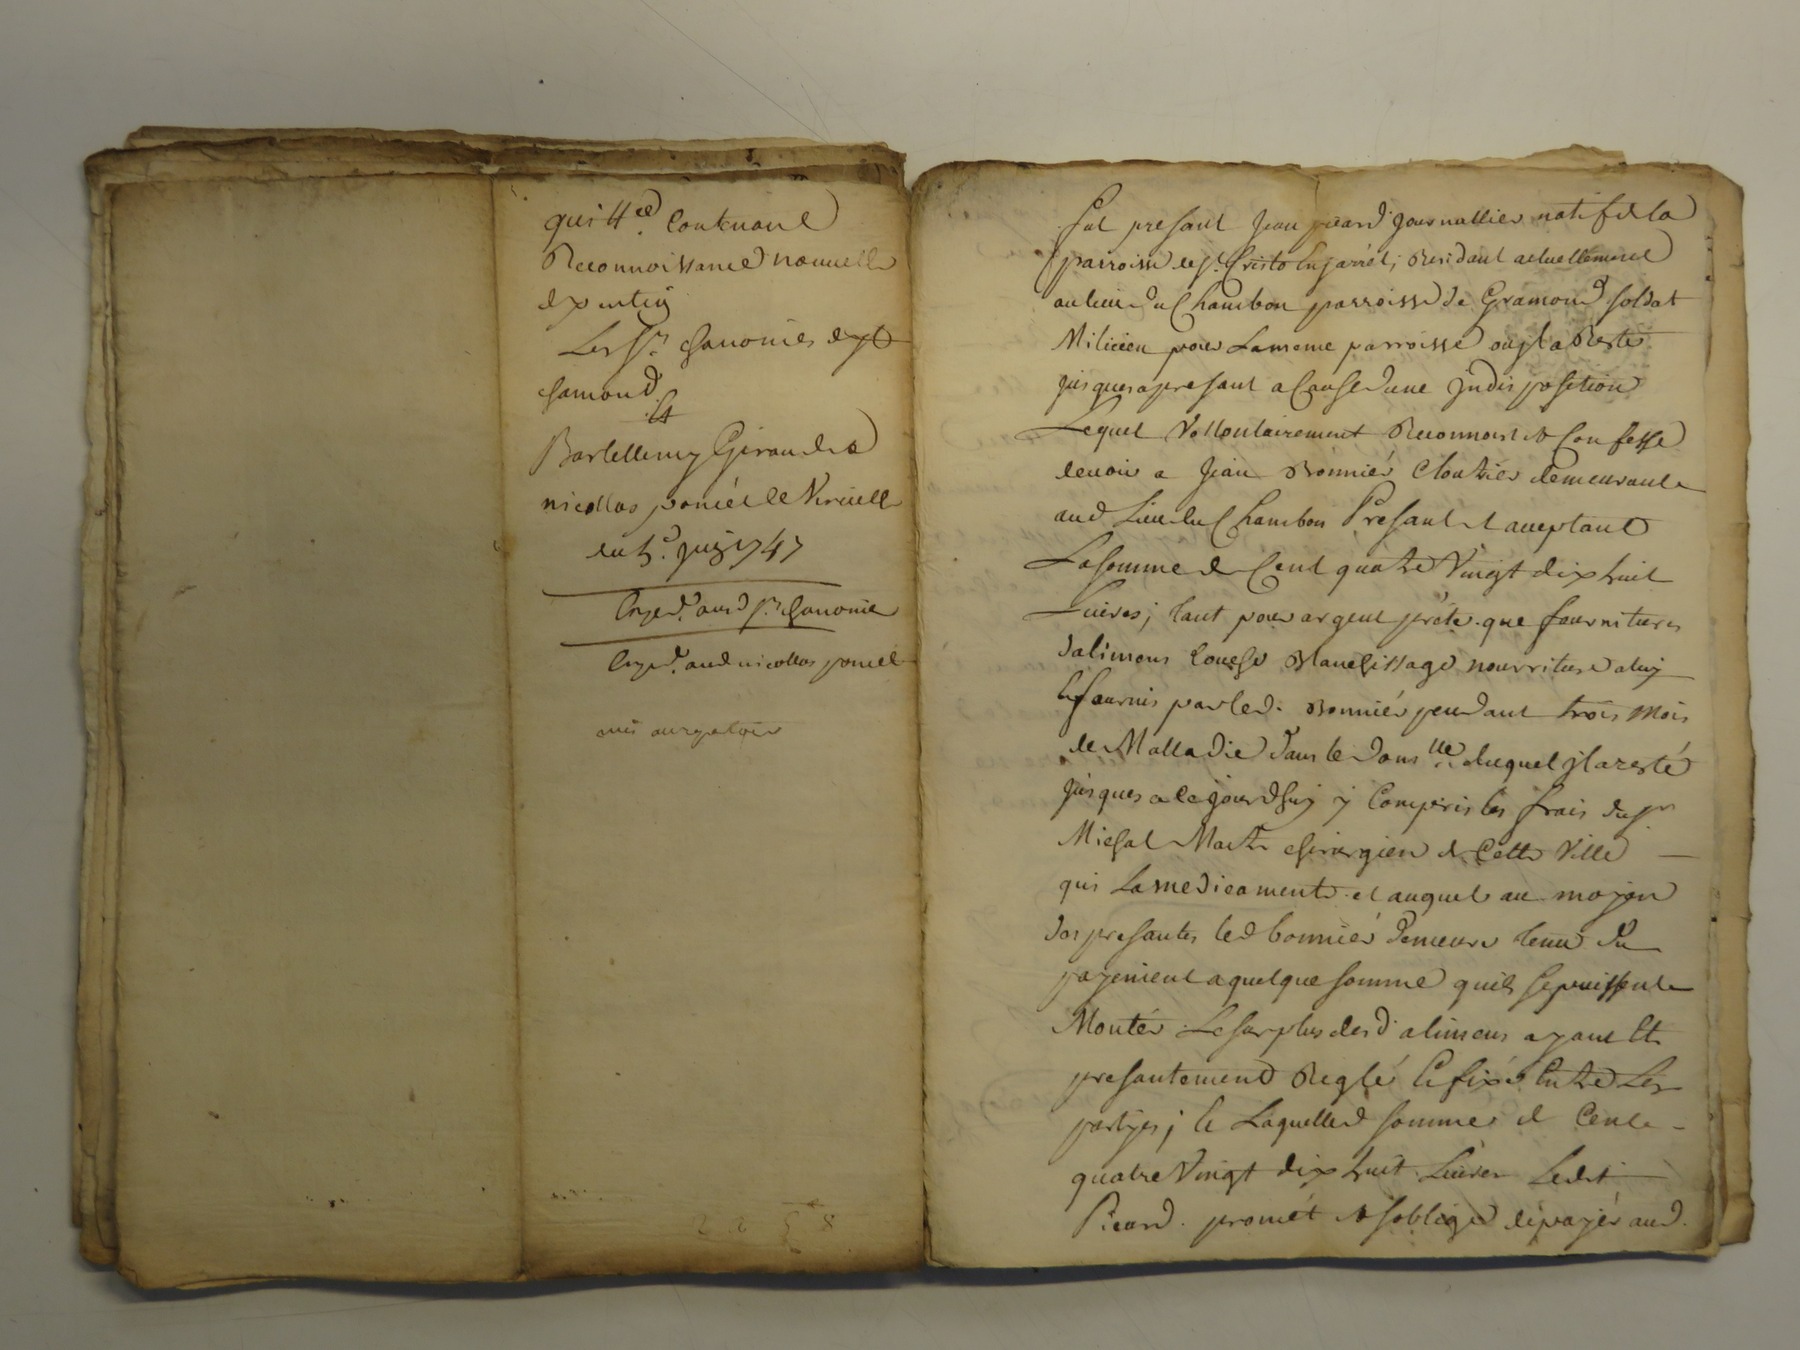 quittce. Contenant
Reconnoissance nouvelle
Les Srs chanoines de St
chamond
Et
Bartellemy Giraud &
nicollas poncét de Virieille
du 5e. juin 1747
Exped. aud Sr chanoine
Exped. aud nicollas poncet
Fut presant Jean picard Journallier natif de la
parroisse de St. Cristo en jarrét, Residant actuellement
au lieu du Chambon parroisse de Gramond soldat
Milicien pour La meme parroisse ou jl a Resté
jusques apresant a Cause d'une jndisposition
Lequel Vollontairement Reconnoist & Confesse
devoir a Jean Bonniér Cloutier demeurant
aud Lieu du Chambon Present et acceptant
La somme de Cent quatre Vingt dix huit
Livres; tant pour argent prété. que fournitures
d'alimens couche Blanchissage nourriture a luy
fournis par led. Bonniér pendant trois mois
de Malladie dans le domlle. duquel jl a resté
jusques a ce jourdhuy y Compris les frais du Sr
Michal Maitre chirurgien de Cette Ville
qui La medicamenté. et auquel au moyen
des presantes led bonniér demeure tenu du
payement a quelque somme quils se puissent
Montér. Le surplus desd. alimens ayant Ete
presantement Reglé Et fixé Entre Les
partyes; & Laquelle somme de Cent
quatre Vingt dix huit Livres Ledit
Picard. promét & soblige de payér aud.